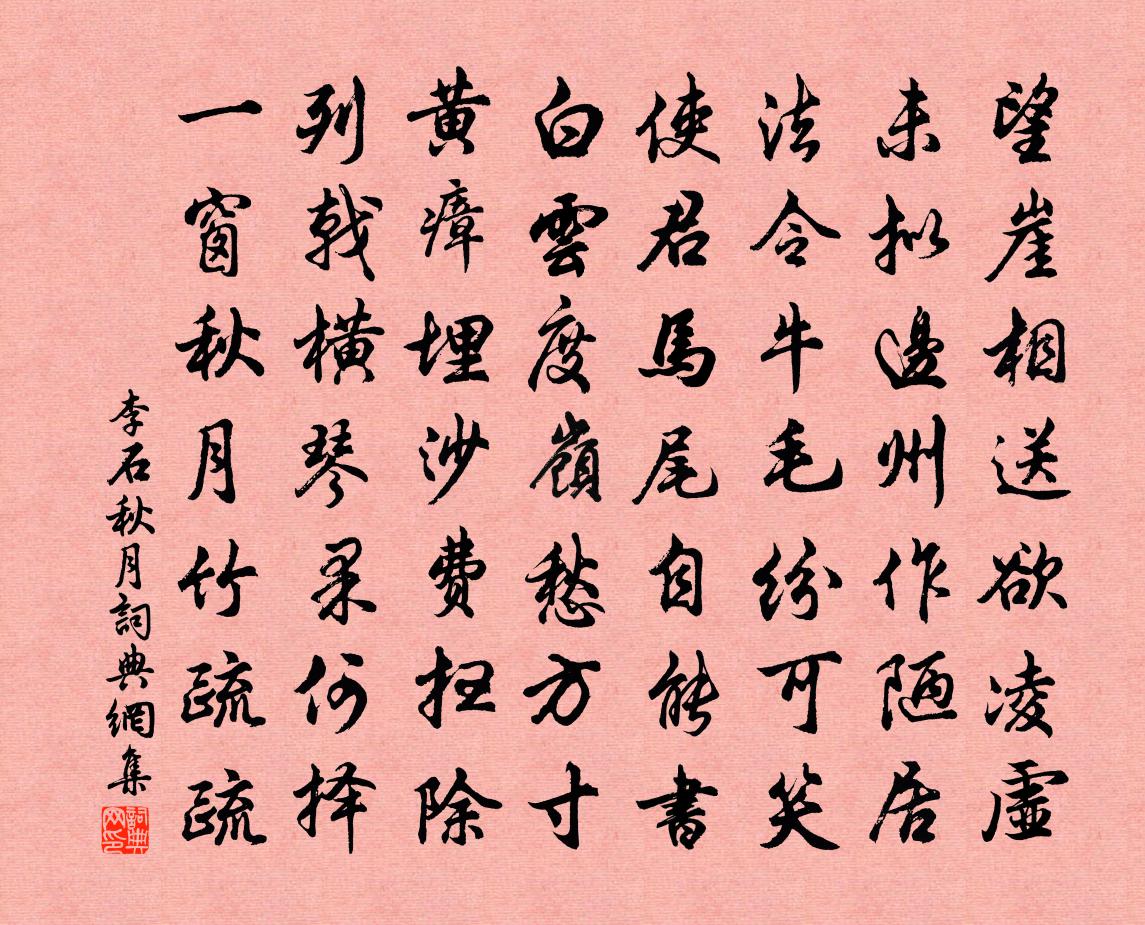 望崖相送欲凌虛
未拟邊州作陋居
法令牛毛紛可笑
使君馬尾自能書
白雲度嶺愁方寸
黄瘴埋沙費扫除
列戟横琴果何择
一窗秋月竹疏疏
李石秋月詞典網集
詞典网印